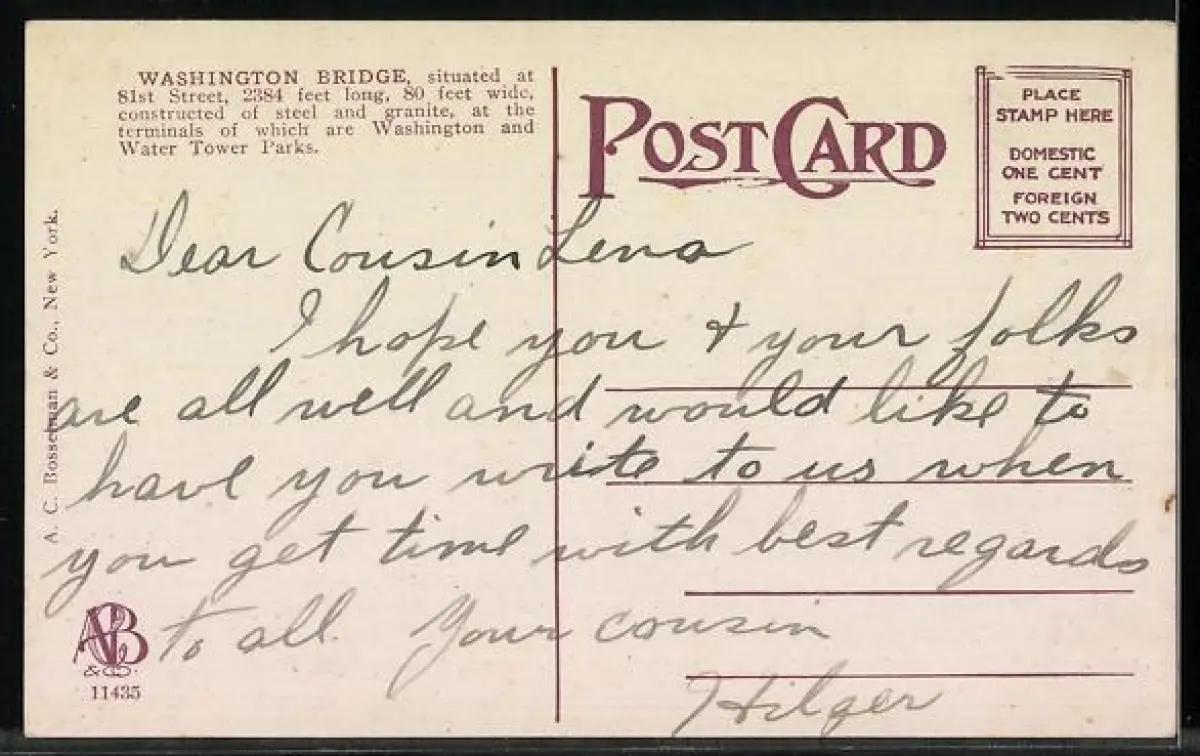 WASHINGTON BRIDGE, situated at
81st Street, 2384 feet long, 80 feet wide,
constructed of steel and granite, at the
terminals of which are Washington and
Water Tower Parks.
POST CARD
PLACE
STAMP HERE
DOMESTIC
ONE CENT
FOREIGN
TWO CENTS
A. C. Bosselman & Co., New York.
Dear Cousin Lena
I hope you & your folks
are all well and would like to
have you write to us when
you get time with best regards
to all. Your cousin
Hilger
ACB
& CO.
11435